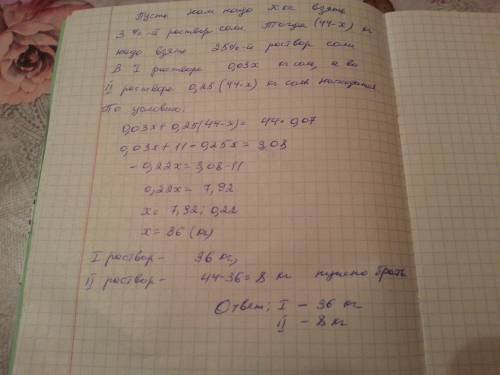 Пусть нам надо x кг взять
3%-й раствор соли. Тогда (44-x) кг
надо взять 25%-й раствор соли
В I растворе 0,03x кг соли, а во
II растворе 0,25(44-x) кг соли находится
По условию:
0,03x + 0,25(44-x) = 44·0,07
0,03x + 11 - 0,25x = 3,08
- 0,22x = 3,08-11
0,22x = 7,92
x = 7,92 : 0,22
x = 36 (кг)
I раствор - 36 кг,
II раствор - 44-36 = 8 кг нужно брать
Ответ: I - 36 кг
II - 8 кг